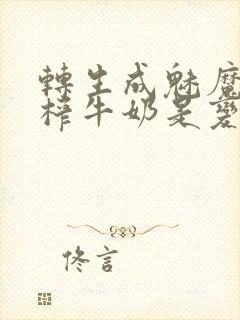 轉生成魅魔
榨牛奶是變
佟言